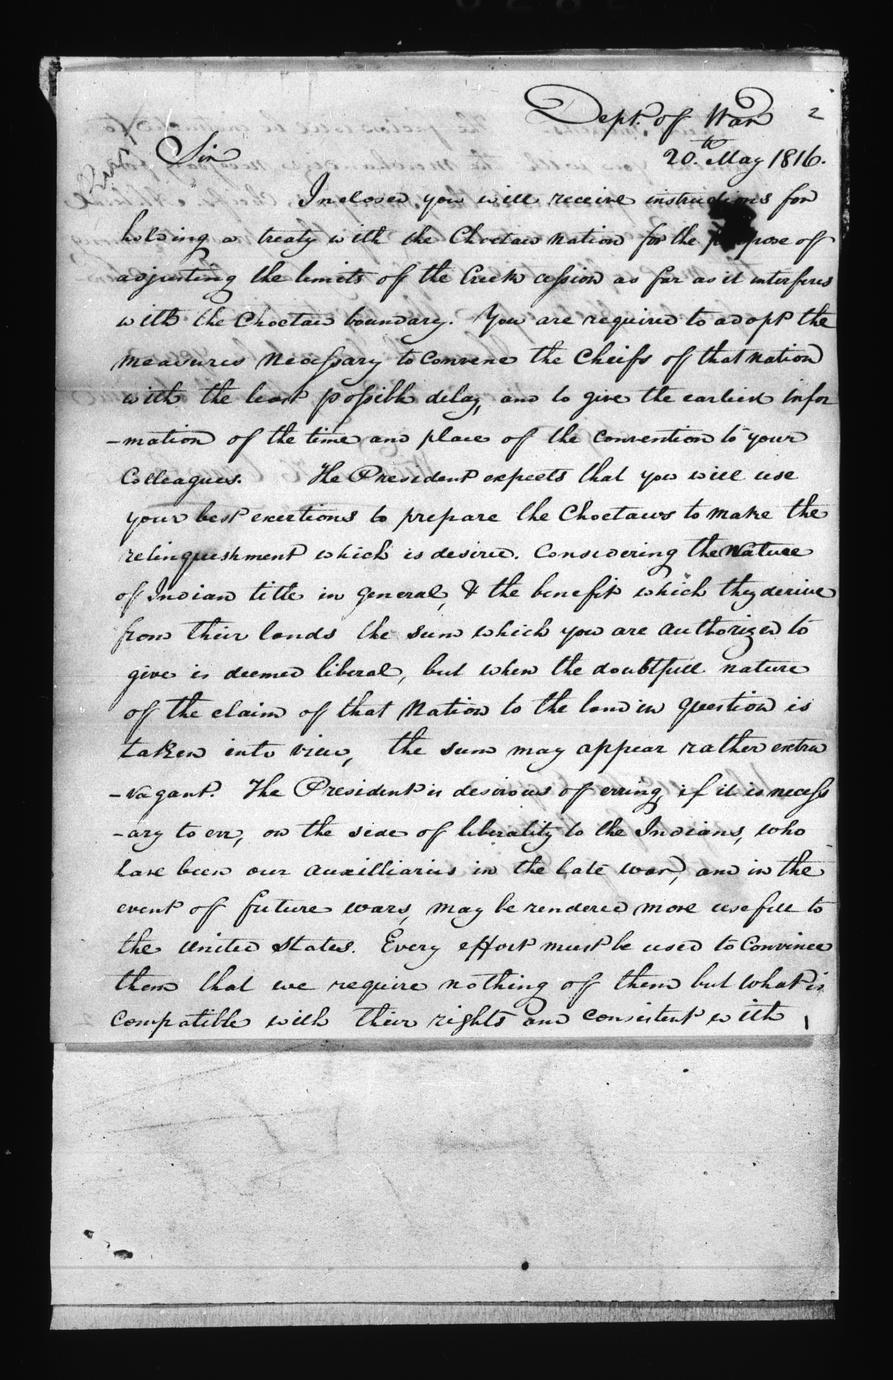 Dept. of War 2
Sir
20.th May 1816.
Inclosed you will receive instructions for
holding a treaty with the Choctaw Nation for the purpose of
adjusting the limits of the Creek cession as far as it interferes
with the Choctaw boundary. You are required to adopt the
measures necessary to convene the Cheifs of that nation
with the least possible delay, and to give the earliest infor
-mation of the time and place of the convention to your
Colleagues. The President expects that you will use
your best exertions to prepare the Choctaws to make the
relinquishment which is desired. Considering the Nature
of Indian title in general, & the benefit which they derive
from their lands the sum which you are authorized to
give is deemed liberal, but when the doubtfull nature
of the claim of that Nation to the land in question is
taken into view, the sum may appear rather extra
-vagant. The President is desirous of erring, if it is necess
-ary to err, on the side of liberality to the Indians, who
have been our auxilliaries in the late war, and in the
event of future wars, may be rendered more usefull to
the United States. Every effort must be used to Convince
them that we require nothing of them but what is
compatible with their rights and consistent with